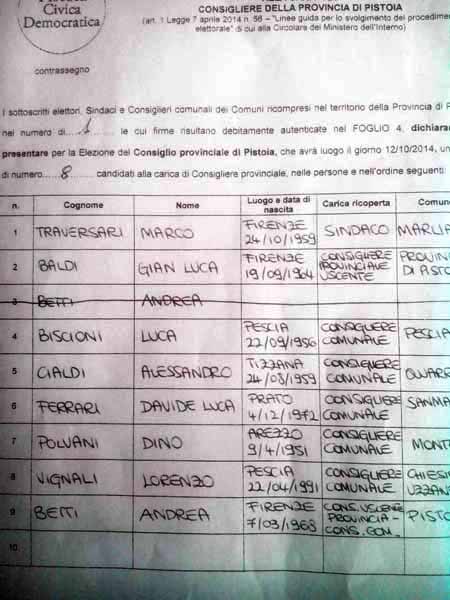 Civica
Democratica
contrassegno
CONSIGLIERE DELLA PROVINCIA DI PISTOIA
(art. 1 Legge 7 aprile 2014 n. 56 – "Linee guida per lo svolgimento del procedimen
elettorale" di cui alla Circolare del Ministero dell'Interno)
I sottoscritti elettori, Sindaci e Consiglieri comunali dei Comuni ricompresi nel territorio della Provincia di P
nel numero di le cui firme risultano debitamente autenticate nel FOGLIO 4, dichiara
presentare per la Elezione del Consiglio provinciale di Pistoia, che avrà luogo il giorno 12/10/2014, un
di numero 8 candidati alla carica di Consigliere provinciale, nelle persone e nell'ordine seguenti:
n. Cognome Nome Luogo e data di nascita Carica ricoperta Comun
1 TRAVERSARI MARCO FIRENZE 24/10/1959 SINDACO MARLIA
2 BALDI GIAN LUCA FIRENZE 19/09/1964 CONSIGLIERE PROVINCIALE USCENTE PROVIN DI PISTO
3 BETTI ANDREA
4 BISCIONI LUCA PESCIA 22/09/1956 CONSIGLIERE COMUNALE PESCIA
5 CIALDI ALESSANDRO TIZZANA 24/08/1959 CONSIGLIERE COMUNALE QUARR
6 FERRARI DAVIDE LUCA PRATO 4/12/1972 CONSIGLIERE COMUNALE SANMA
7 POLVANI DINO AREZZO 9/4/1951 CONSIGLIERE COMUNALE MONT
8 VIGNALI LORENZO PESCIA 22/04/1991 CONSIGLIERE COMUNALE CHIESI UZZAN
9 BETTI ANDREA FIRENZE 7/03/1968 CONS. USCENTE PROVINCIA - CONS. COM. PISTO
10